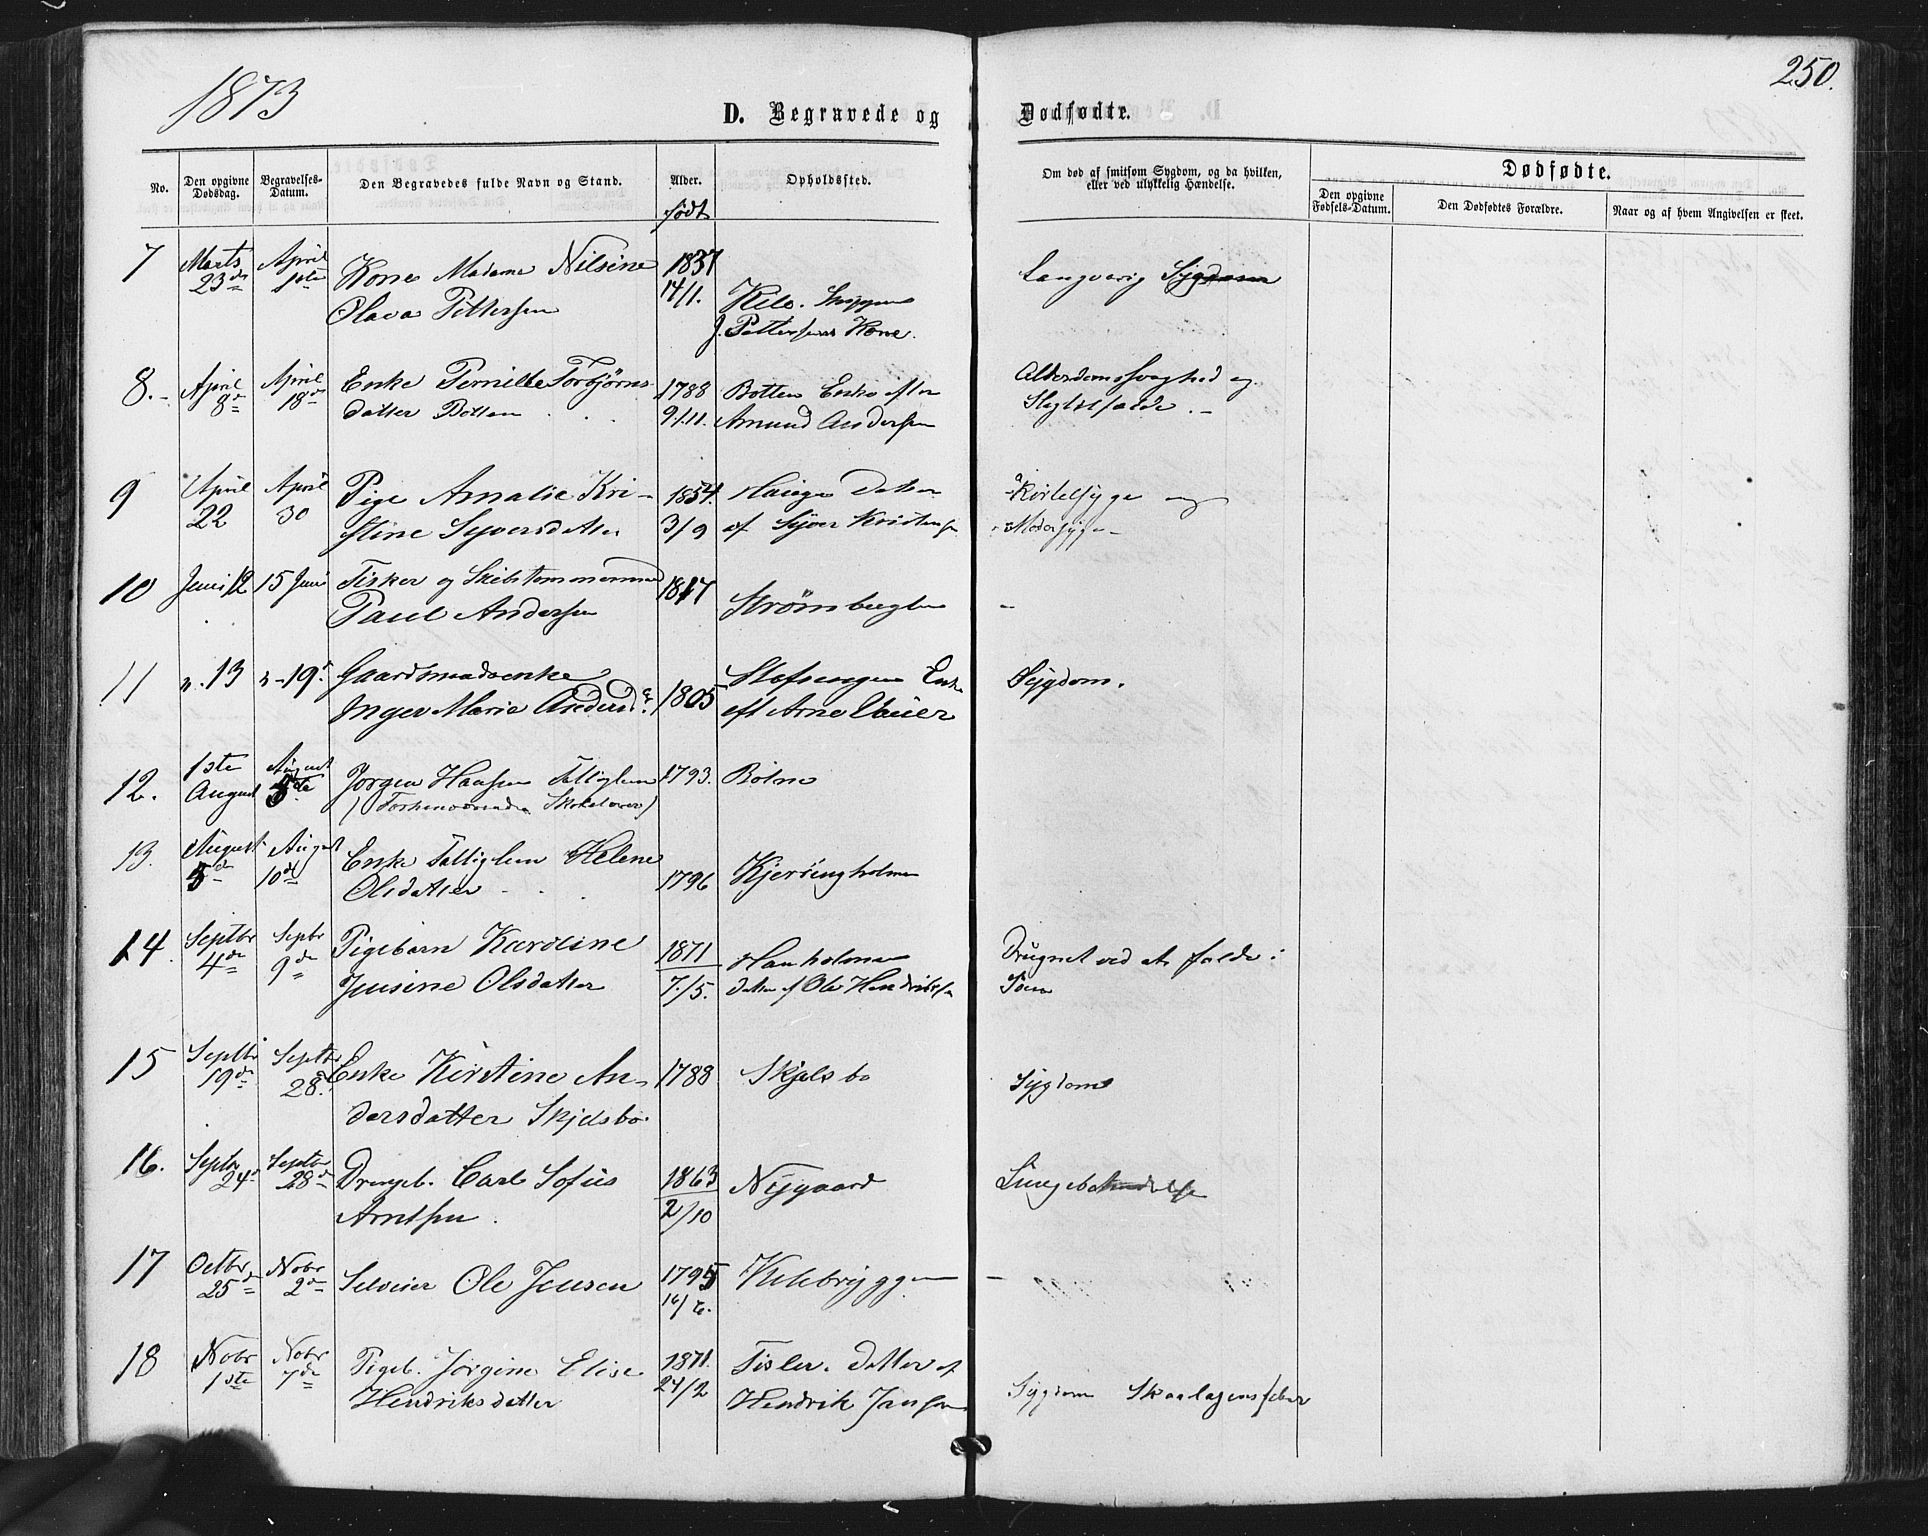 1873
250.
D. Begravede og Dødfødte.
No.
Den opgivne Dødsdag.
Begravelses-Datum.
Den Begravedes fulde Navn og Stand.
Alder.
født
Opholdssted.
Om død af smitsom Sygdom, og da hvilken, eller ved ulykkelig Hændelse.
Dødfødte.
Den opgivne Fødsels-Datum.
Den Dødfødtes Forældre.
Naar og af hvem Angivelsen er skeet.
7 Marts April Kone Madame Nilsine 1837 Langvarig Sygdom
23de 1ste Olava Pettersen 14/1. Kile. Skipper
J. Pettersens Kone.
8. April April Enke Pernille Torbjørns 1788 Botten Enke efter Alderdomssvaghed og
8de 18de datter Botten 9/11. Amund Andersen
9 April April Pige Amalie Kri- 1854. Haugen Datter Kirtelsyge og
22 30 stine Syversdatter 3/9 af Syver Kristensen Modersyge
10 Juni 12 15 Juni Fisker og Skibstømmermand 1817
Paul Andersen Strømbugten -
11 " 13 " 19de Gaardmandsenke Enke Sygdom.
Inger Marie Andersd. 1805 eft Arne
12. 1ste August Jørgen Hansen Fattiglem 1793. Botne
August 5te (Forhenværende)
13. August August Enke Fattiglem Helene
5de 10de Olsdatter 1796 Kjerringholmen
14. Septbr Sepbr Pigebarn Karoline 1871 Hanholmen Drugnet ved at falde i
4de 9de Jusine Olsdatter 7/5. datter af Ole Hendriksen Søen
15 Septbr Septbr Enke Kirstine An- 1788 Skjelsbo Sygdom
19de 28de dersdatter Skjelsbo
16. Septbr Septbr Drengeb. Carl Sofus 1863 Nygaard Lungebetændelse
24de 28de Arntsen. 2/10
17 Octbr Nobr Selveier Ole Jensen 1795 Kilebryggen -
25de 2de 16/6.
18 Nobr Nobr Pigeb. Jørgine Elise 1871. Tisler. Datter af
1ste 7de Hendriksdatter 24/2 Hendrik Jansen Sygdom Skarlagensfeber